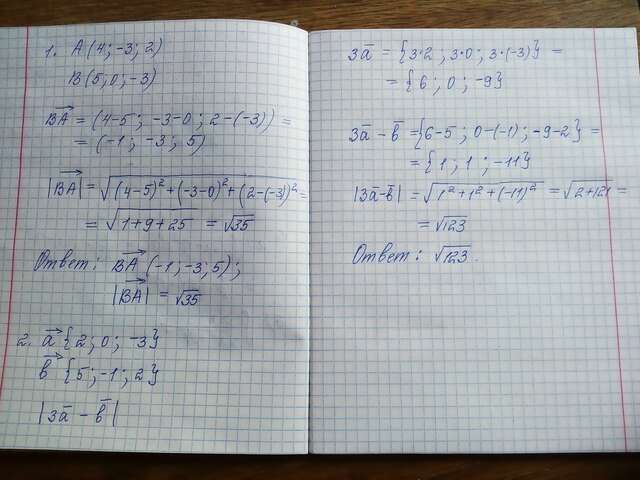 1. A(4; -3; 2)
B(5; 0; -3)
BA = (4-5; -3-0; 2-(-3)) =
= (-1; -3; 5)
|BA| = √(4-5)²+(-3-0)²+(2-(-3)² =
= √1+9+25 = √35
Ответ: BA (-1; -3; 5);
|BA| = √35
2. a {2; 0; -3}
b {5; -1; 2}
|3a - b|
3a = {3·2; 3·0; 3·(-3)} =
= {6; 0; -9}
3a - b = {6-5; 0-(-1); -9-2} =
= {1; 1; -11}
|3a-b| = √1²+1²+(-11)² = √2+121 =
= √123
Ответ: √123.